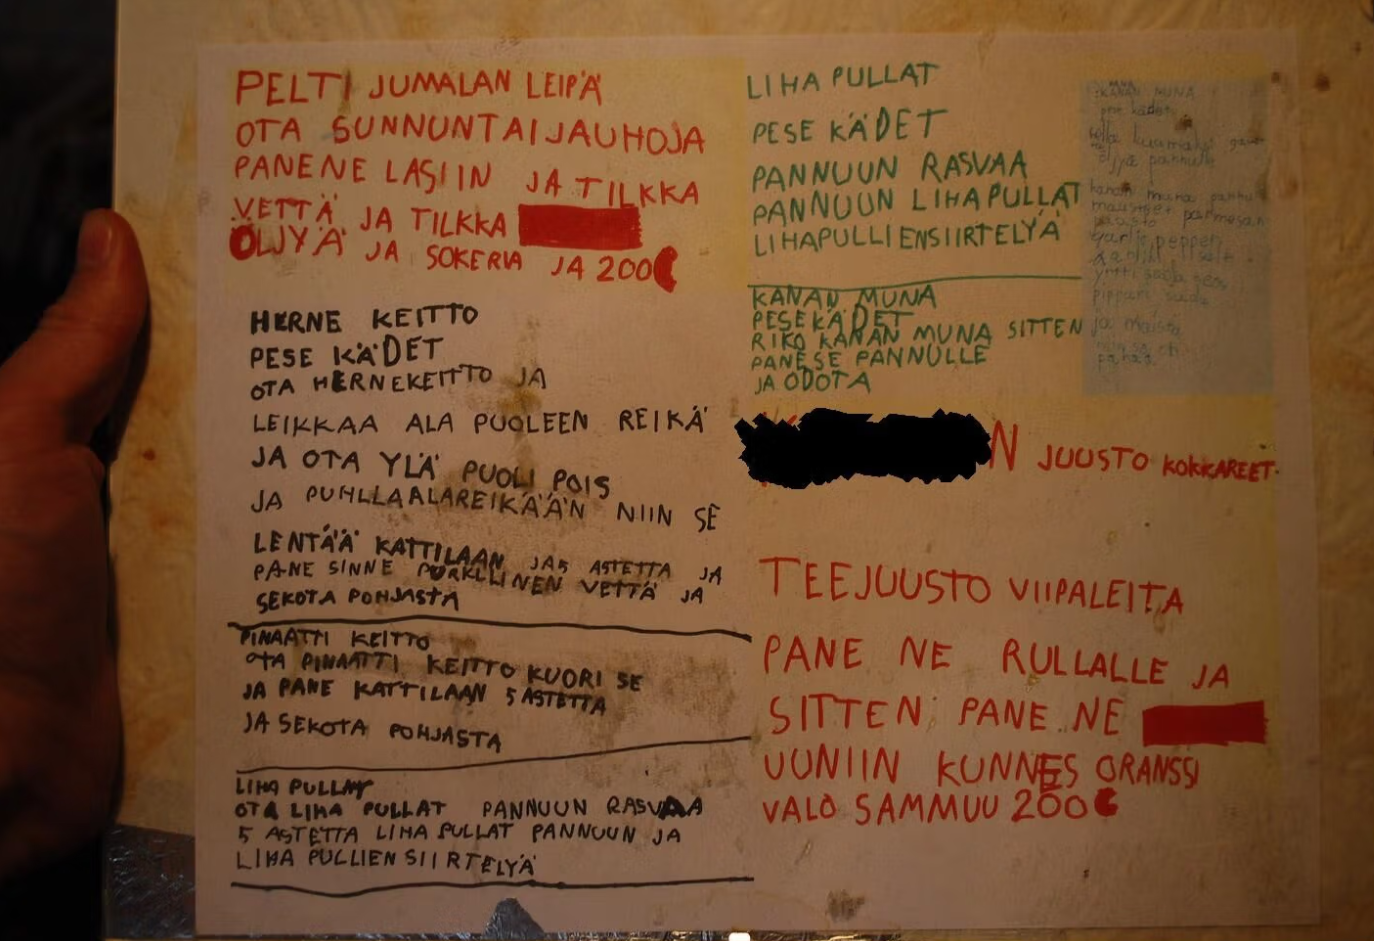 PELTI JUMALAN LEIPÄ
OTA SUNNUNTAIJAUHOJA
PANENE LASIIN JA TILKKA
VETTÄ JA TILKKA
ÖLJYÄ JA SOKERIA JA 200C
HERNE KEITTO
PESE KÄDET
OTA HERNEKEITTO JA
LEIKKAA ALA PUOLEEN REIKÄ
JA OTA YLÄ PUOLI POIS
JA PUHLLAALAREIKÄÄN NIIN SE
LENTÄÄ KATTILAAN JA5 ASTETTA JA
PANE SINNE PURKLLINEN VETTÄ JA
SEKOTA POHJASTA
PINAATTI KEITTO
OTA PINAATTI KEITTO KUORI SE
JA PANE KATTILAAN 5 ASTETTA
JA SEKOTA POHJASTA
LIHA PULLAT
OTA LIHA PULLAT PANNUUN RASVAA
5 ASTETTA LIHA PULLAT PANNUUN JA
LIHA PULLIEN SIIRTELYÄ
LIHA PULLAT
PESE KÄDET
PANNUUN RASVAA
PANNUUN LIHAPULLAT
LIHAPULLIENSIIRTELYÄ
KANAN MUNA
PESE KÄDET
RIKO KANAN MUNA SITTEN
PANESE PANNULLE
JA ODOTA
N JUUSTO KOKKAREET.
TEEJUUSTO VIIPALEITA
PANE NE RULLALLE JA
SITTEN PANE NE
UUNIIN KUNNES ORANSSI
VALO SAMMUU 200C
KANAN MUNA
öljyä pannulle
kanan muna
mausteet parmesan
pippari
ja maista